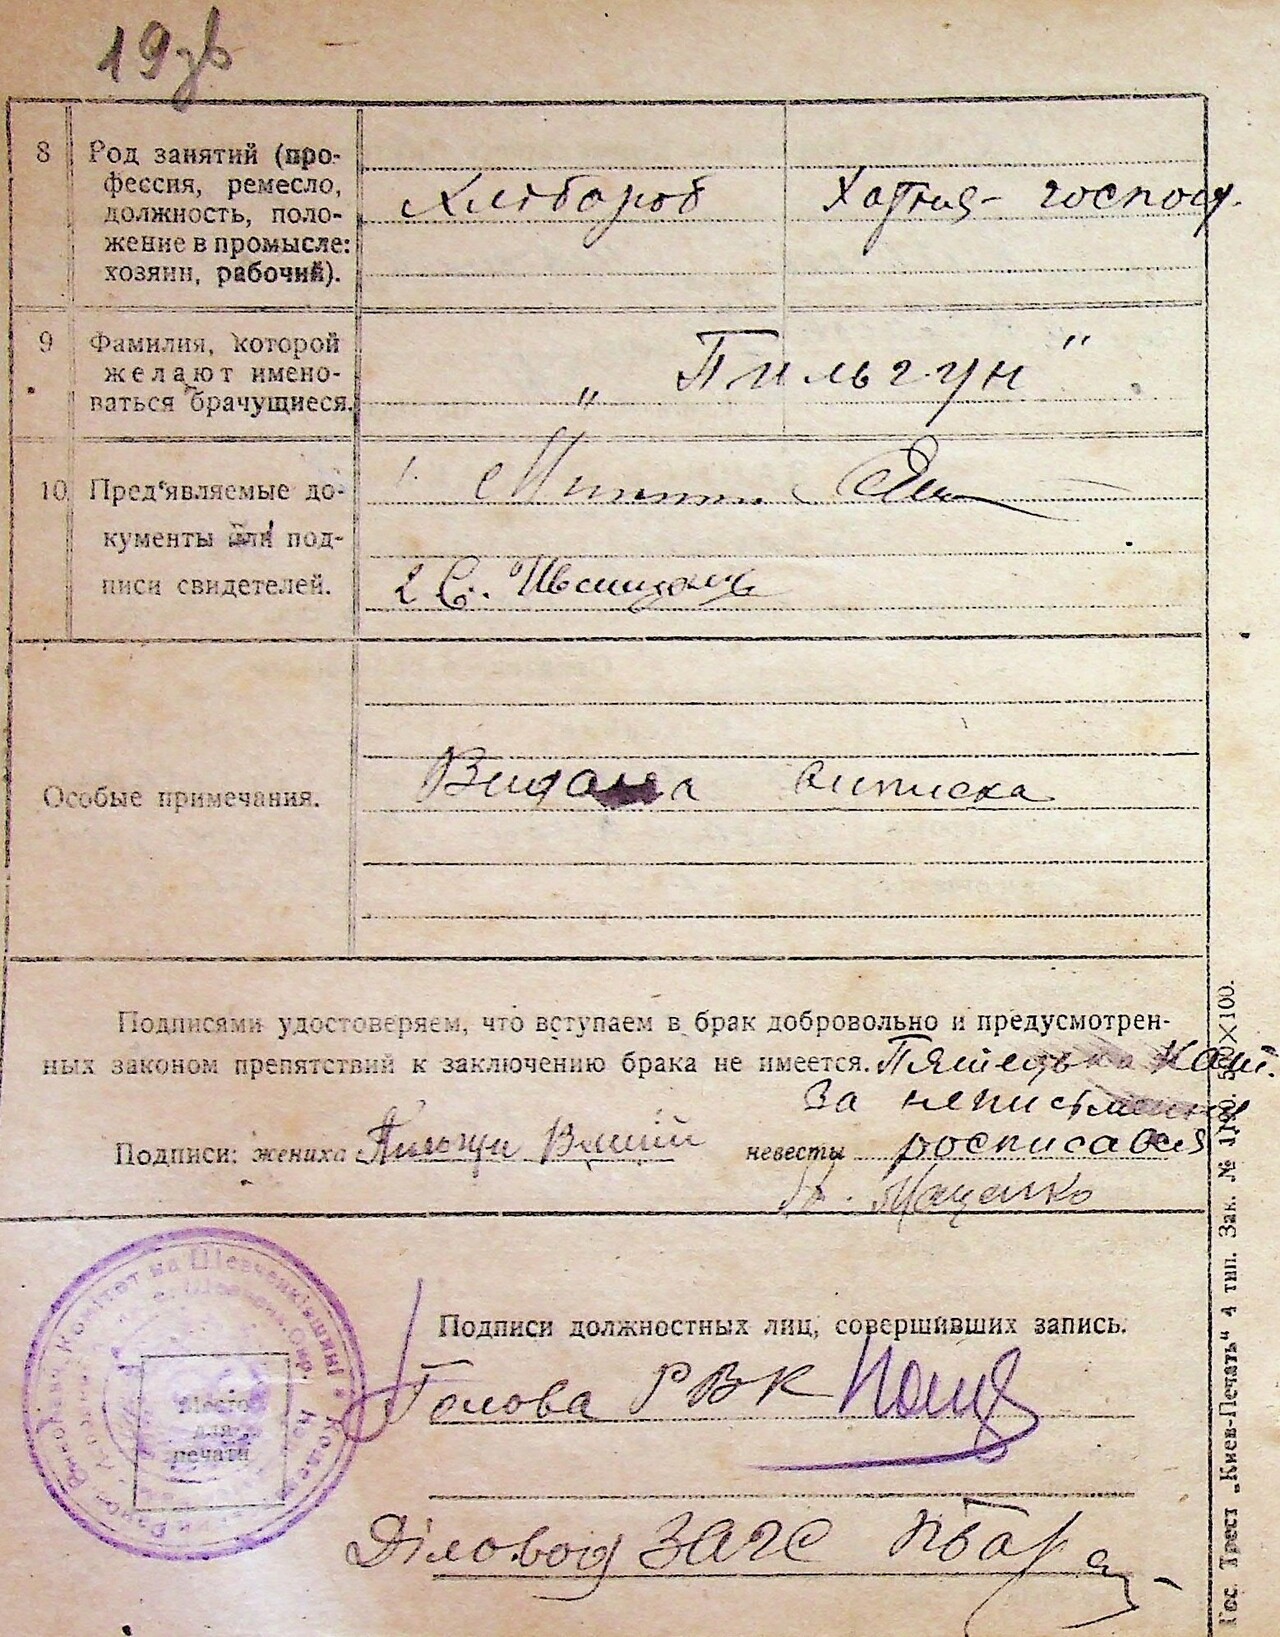 19
8
Род занятий (про-
фессия, ремесло,
должность, поло-
жение в промысле:
хозяин, рабочий).
Хлібороб
Хатня - господ.
9
Фамилия, которой
желают имено-
ваться брачущиеся.
„ Пильгун "
10
Пред'являемые до-
кументы или под-
писи свидетелей.
1.
2 С.
Особые примечания.
Видана виписка
Подписями удостоверяем, что вступаем в брак добровольно и предусмотрен-
ных законом препятствий к заключению брака не имеется.
За неписьменну
Подписи: жениха Пильгун
невесты росписався
Яценко
Подписи должностных лиц, совершивших запись.
Голова РВК
Діловод ЗАГС
Место
для
печати
Гос. Трест „Киев-Печать" 4 тип. Зак. №